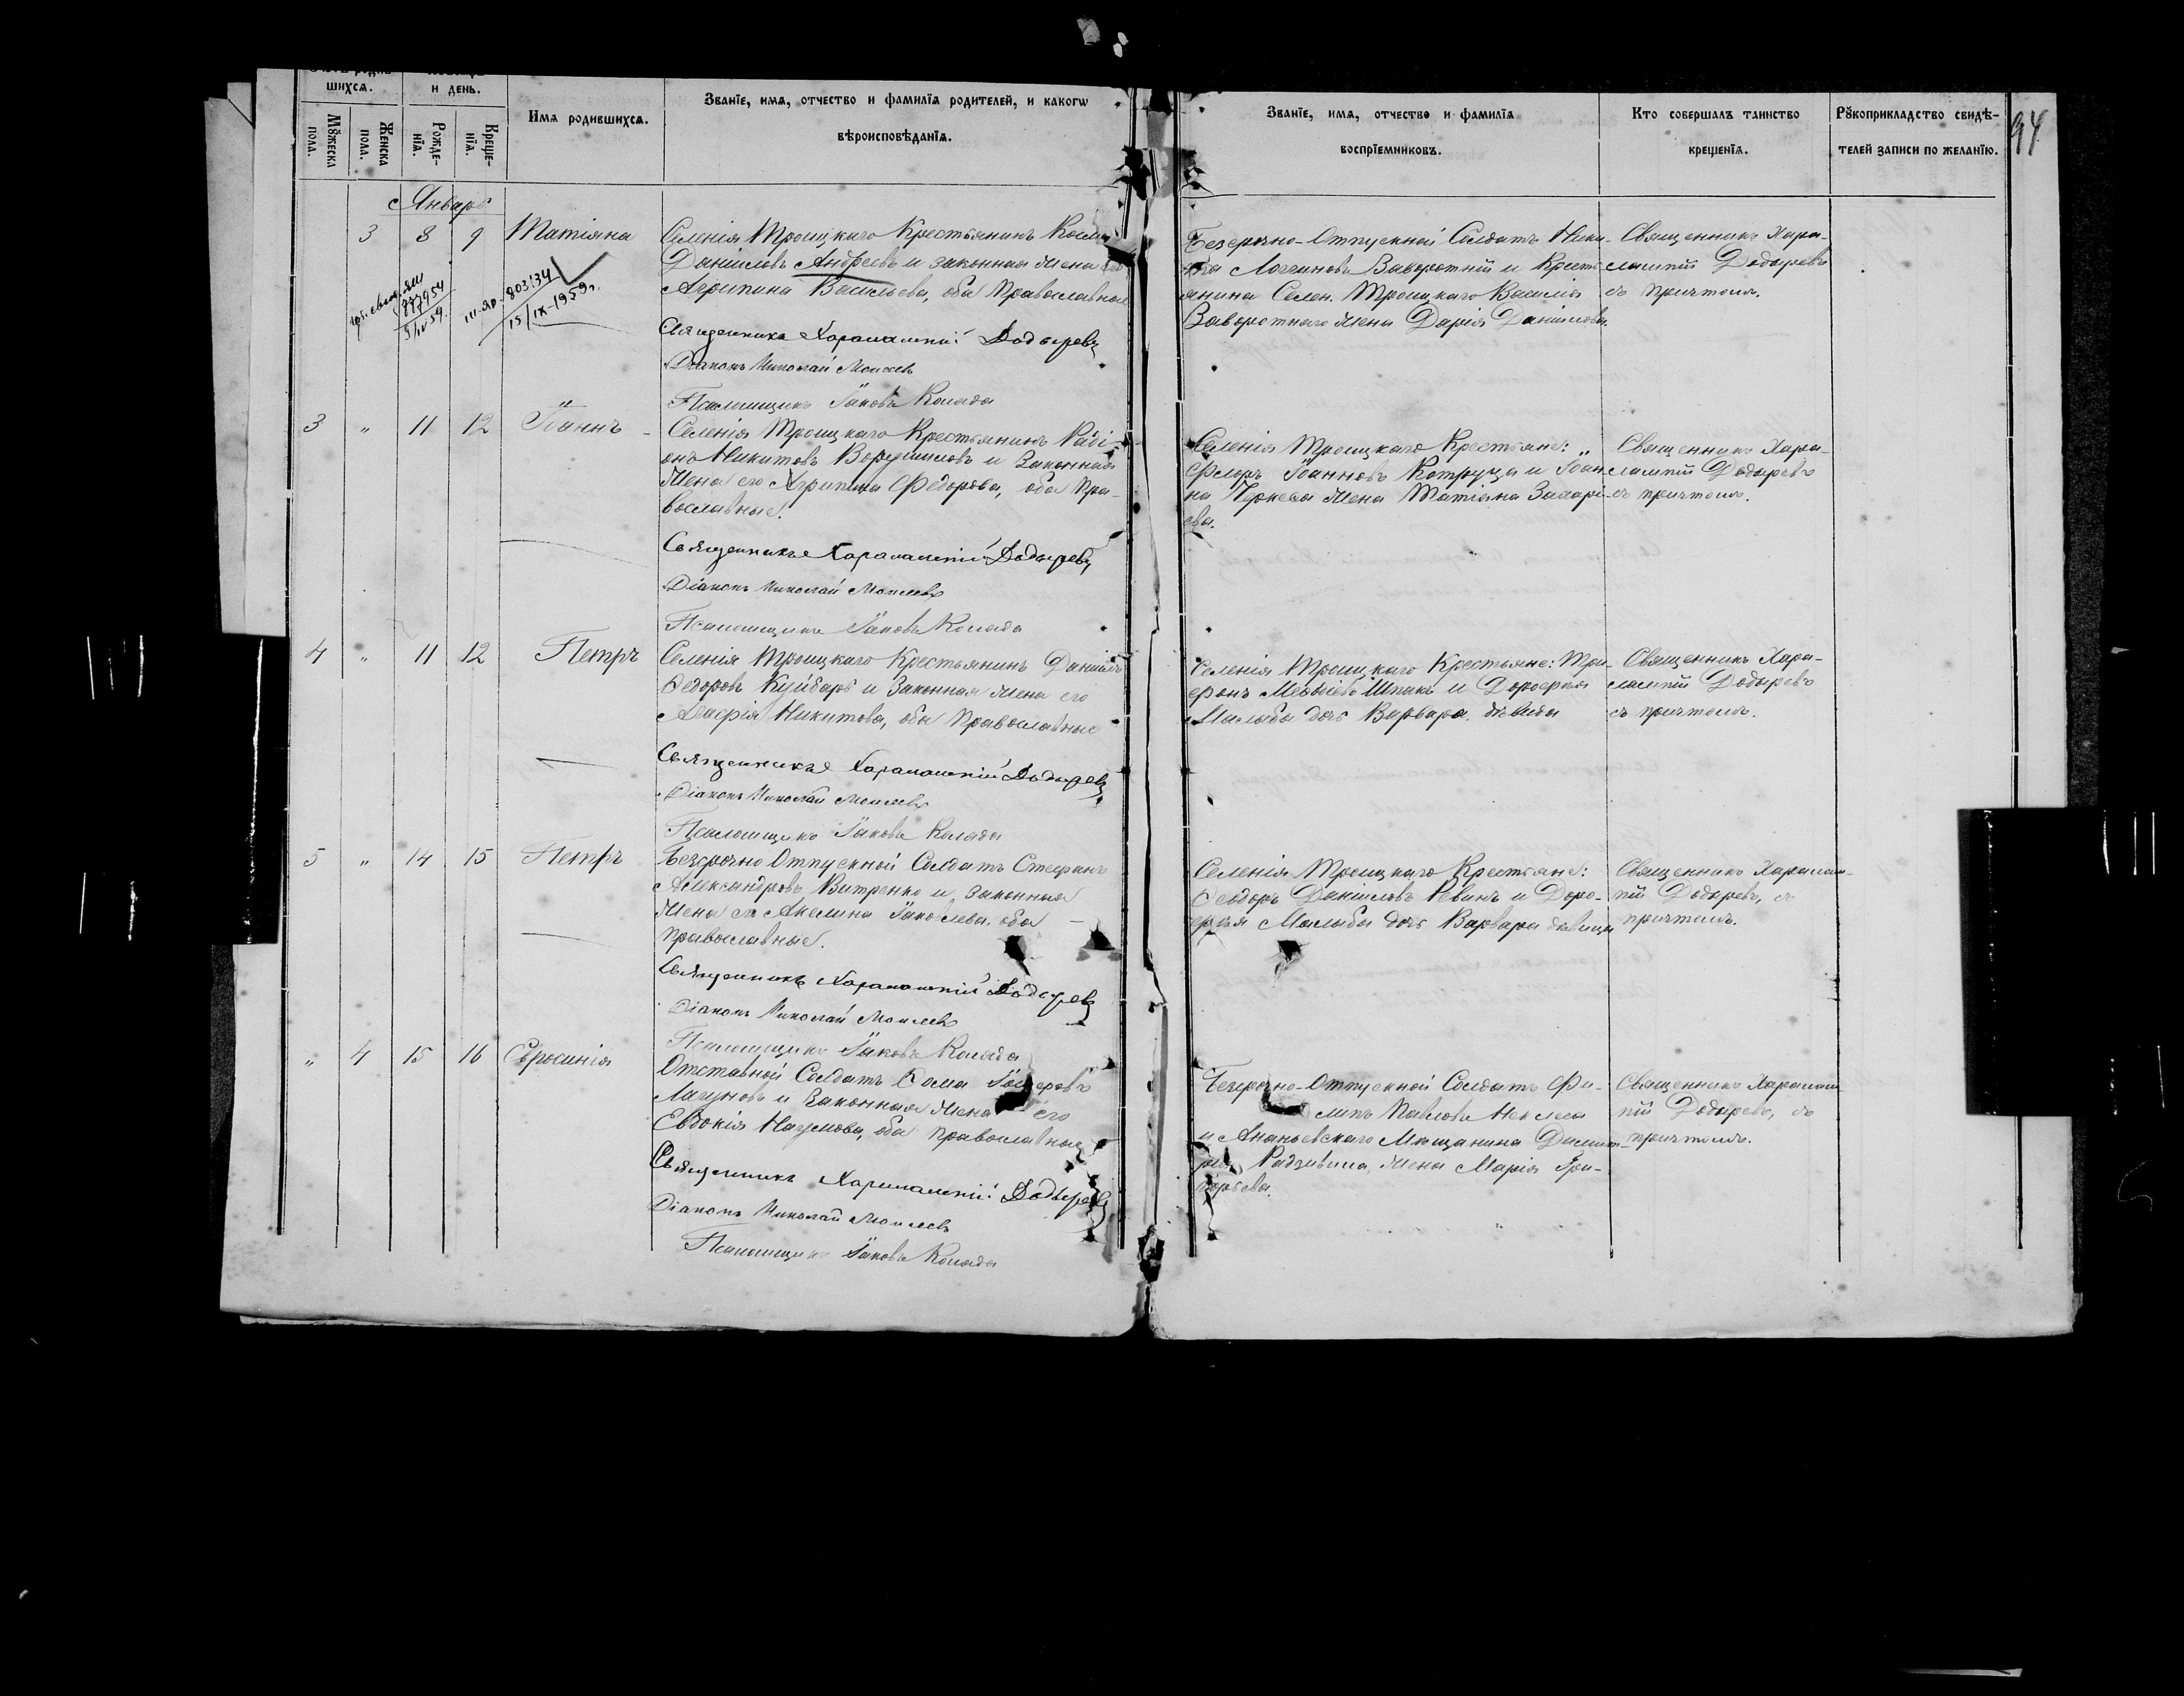 шихсѧ.
и день.
Имѧ родившихсѧ.
Званїе, имѧ, отчество и фамилїѧ родителей, и какогѡ
вѣроисповѣданїѧ.
Званїе, имѧ, отчество и фамилїѧ
воспрїемниковъ.
Кто совершалъ таинство
крещенїѧ.
Рꙋкоприкладство свидѣ-
телей записи по желанїю.
94
Мꙋжеска
пола.
Женска
пола.
Рожде-
нїѧ.
Креще-
нїѧ.
Январь
3 8 9 Татіяна
Селенія Троицкаго Крестьянинъ Косма
Даніиловъ Андреевъ и законная жена его
Агрипина Васильева, оба Православные
Священникъ Харалампій Додыревъ
Діаконъ Николай Моисеевъ
Псаломщикъ Іаковъ Колада
803134
15/IX-1959г.
887954
Безсрочно-Отпускной Солдатъ Ники-
та Логгиновъ Заворотній и Кресть
янина Селен. Троицкаго Василія
Заворотнаго жена Дарія Даніилова.
Священникъ Хара-
лампій Додыревъ
съ причтомъ.
3 " 11 12 Іоаннъ
Селенія Троицкаго Крестьянинъ Радї-
онъ Никитовъ Ворушиловъ и Законная
жена его Агрипина Федорова, оба Пра-
вославные.
Священникъ Харалампій Додыревъ
Діаконъ Николай Моисеевъ
Псаломщикъ Іаковъ Колада
Селенія Троицкаго Крестьяне: "
Флоръ Іоанновъ Котруца и Іоан
на Черкеса жена Татіана Захарі-
ева.
Священникъ Хара-
лампій Додыревъ
съ причтомъ.
4 " 11 12 Петръ
Селенія Троицкаго Крестьянинъ Даніилъ
Федоровъ Куйбарь и Законная жена его
Агафія Никитова, оба Православные
Священникъ Харалампій Додыревъ
Діаконъ Николай Моисеевъ
Псаломщикъ Іаковъ Колада
Селенія Троицкаго Крестьяне: Три-
фонъ Шпакъ и Дорофея
Малыба дочь Варвара дѣвица
Священникъ Хара-
лампій Додыревъ
съ причтомъ.
5 " 14 15 Петръ
Безсрочно Отпускной Солдатъ Стефанъ
Александровъ Витренко и законная
жена его Акелина Іаковлева, оба
Православные.
Священникъ Харалампій Додыревъ
Діаконъ Николай Моисеевъ
Псаломщикъ Іаковъ Колада
Селенія Троицкаго Крестьяне:
Феодоръ Даніиловъ Ревинъ и Доро-
фея Малыба дочь Варвара дѣвица
Священникъ Харалам-
пій Додыревъ, съ
причтомъ.
" 4 15 16 Єфросинія
Отставной Солдатъ Фома
Лагуновъ и Законная жена его
Евдокія Наумова, оба Православные
Священникъ Харалампій Додыревъ
Діаконъ Николай Моисеевъ
Псаломщикъ Іаковъ Колада
Безсрочно-Отпускной Солдатъ Фи-
липъ Павловъ
и Ананьевскаго Мѣщанина Димит-
рія Радзивила, жена Марія Гри-
горьева.
Священникъ Харалам
пій Додыревъ, съ
причтомъ.